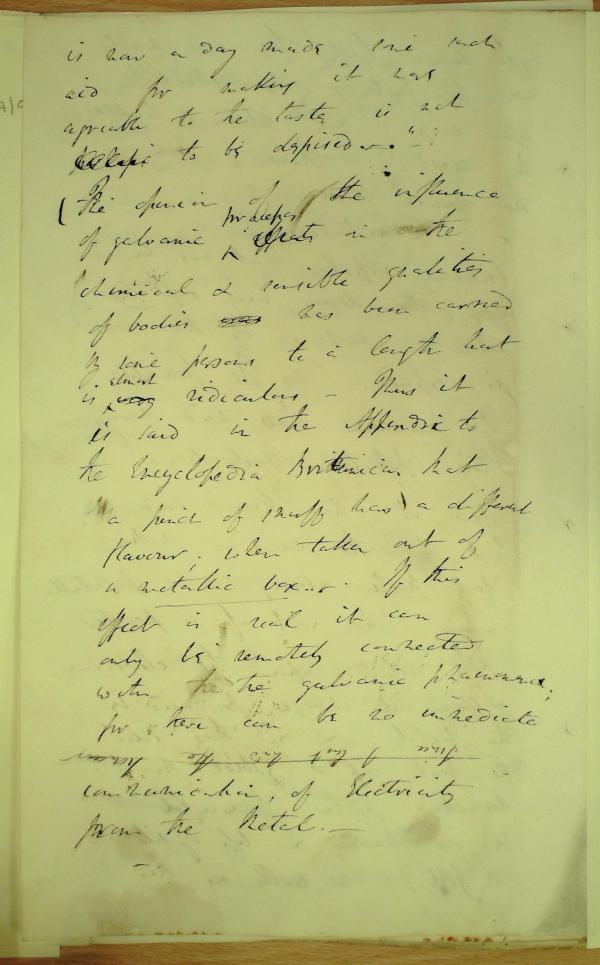 is now a day made some such
aid for making it more
agreeable to the taste is not
to be despised."
The opinion of the influence
of galvanic processes effects in the
chemical & sensible qualities
of bodies was has been carried
by some persons to a length that
is very almost ridiculous - Thus it
is said in the Appendix to
the Encyclopedia Britannica that
"a pinch of snuff has a different
flavour, when taken out of
a metallic box". If this
effect is real it can
only be remotely connected
with the galvanic phaenomena,
for there can be no immediate
communication, of Electricity
from the Metal. —